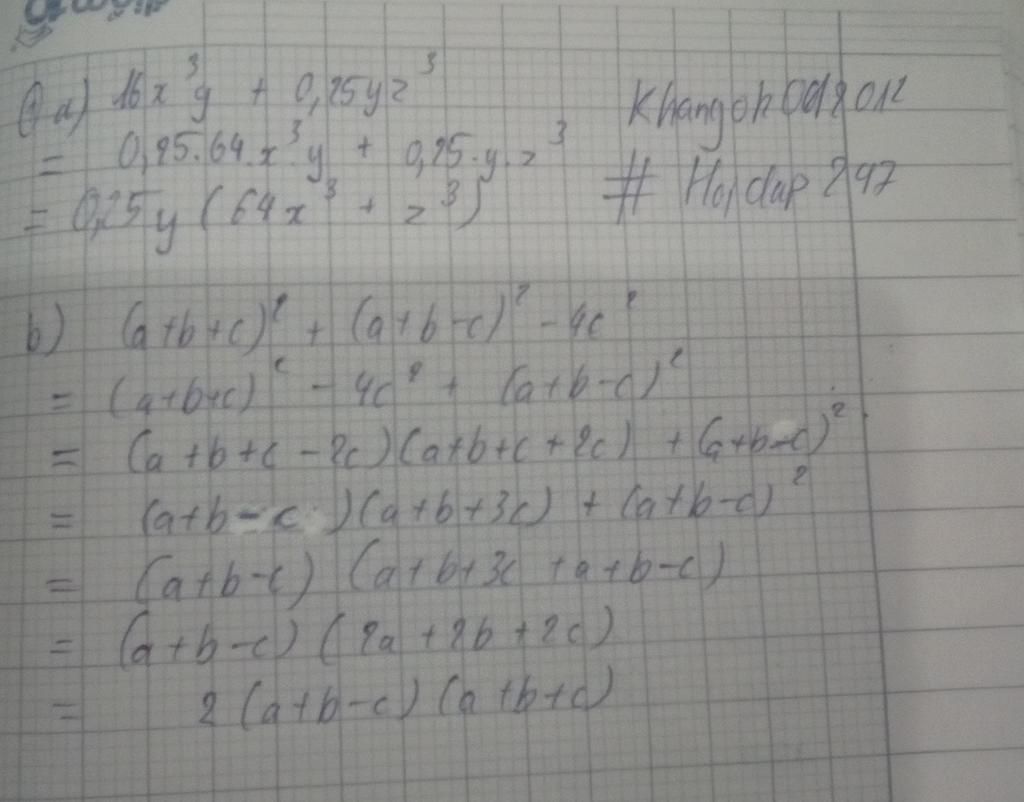 a) 16x³y + 0,25yz³
= 0,25.64.x³.y + 0,25.y.z³
= 0,25y (64x³ + z³)
# Hoidap 247
b) (a+b+c)² + (a+b-c)² - 4c²
= (a+b+c)² - 4c² + (a+b-c)²
= (a+b+c-2c)(a+b+c+2c) + (a+b-c)²
= (a+b-c)(a+b+3c) + (a+b-c)²
= (a+b-c) (a+b+3c+a+b-c)
= (a+b-c) (2a+2b+2c)
= 2 (a+b-c) (a+b+c)